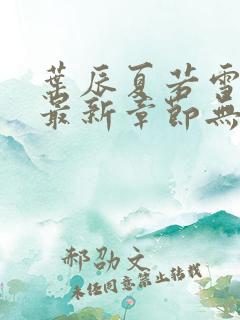 葉辰夏若雪
最新章節無
郝劭文
未经同意禁止转载